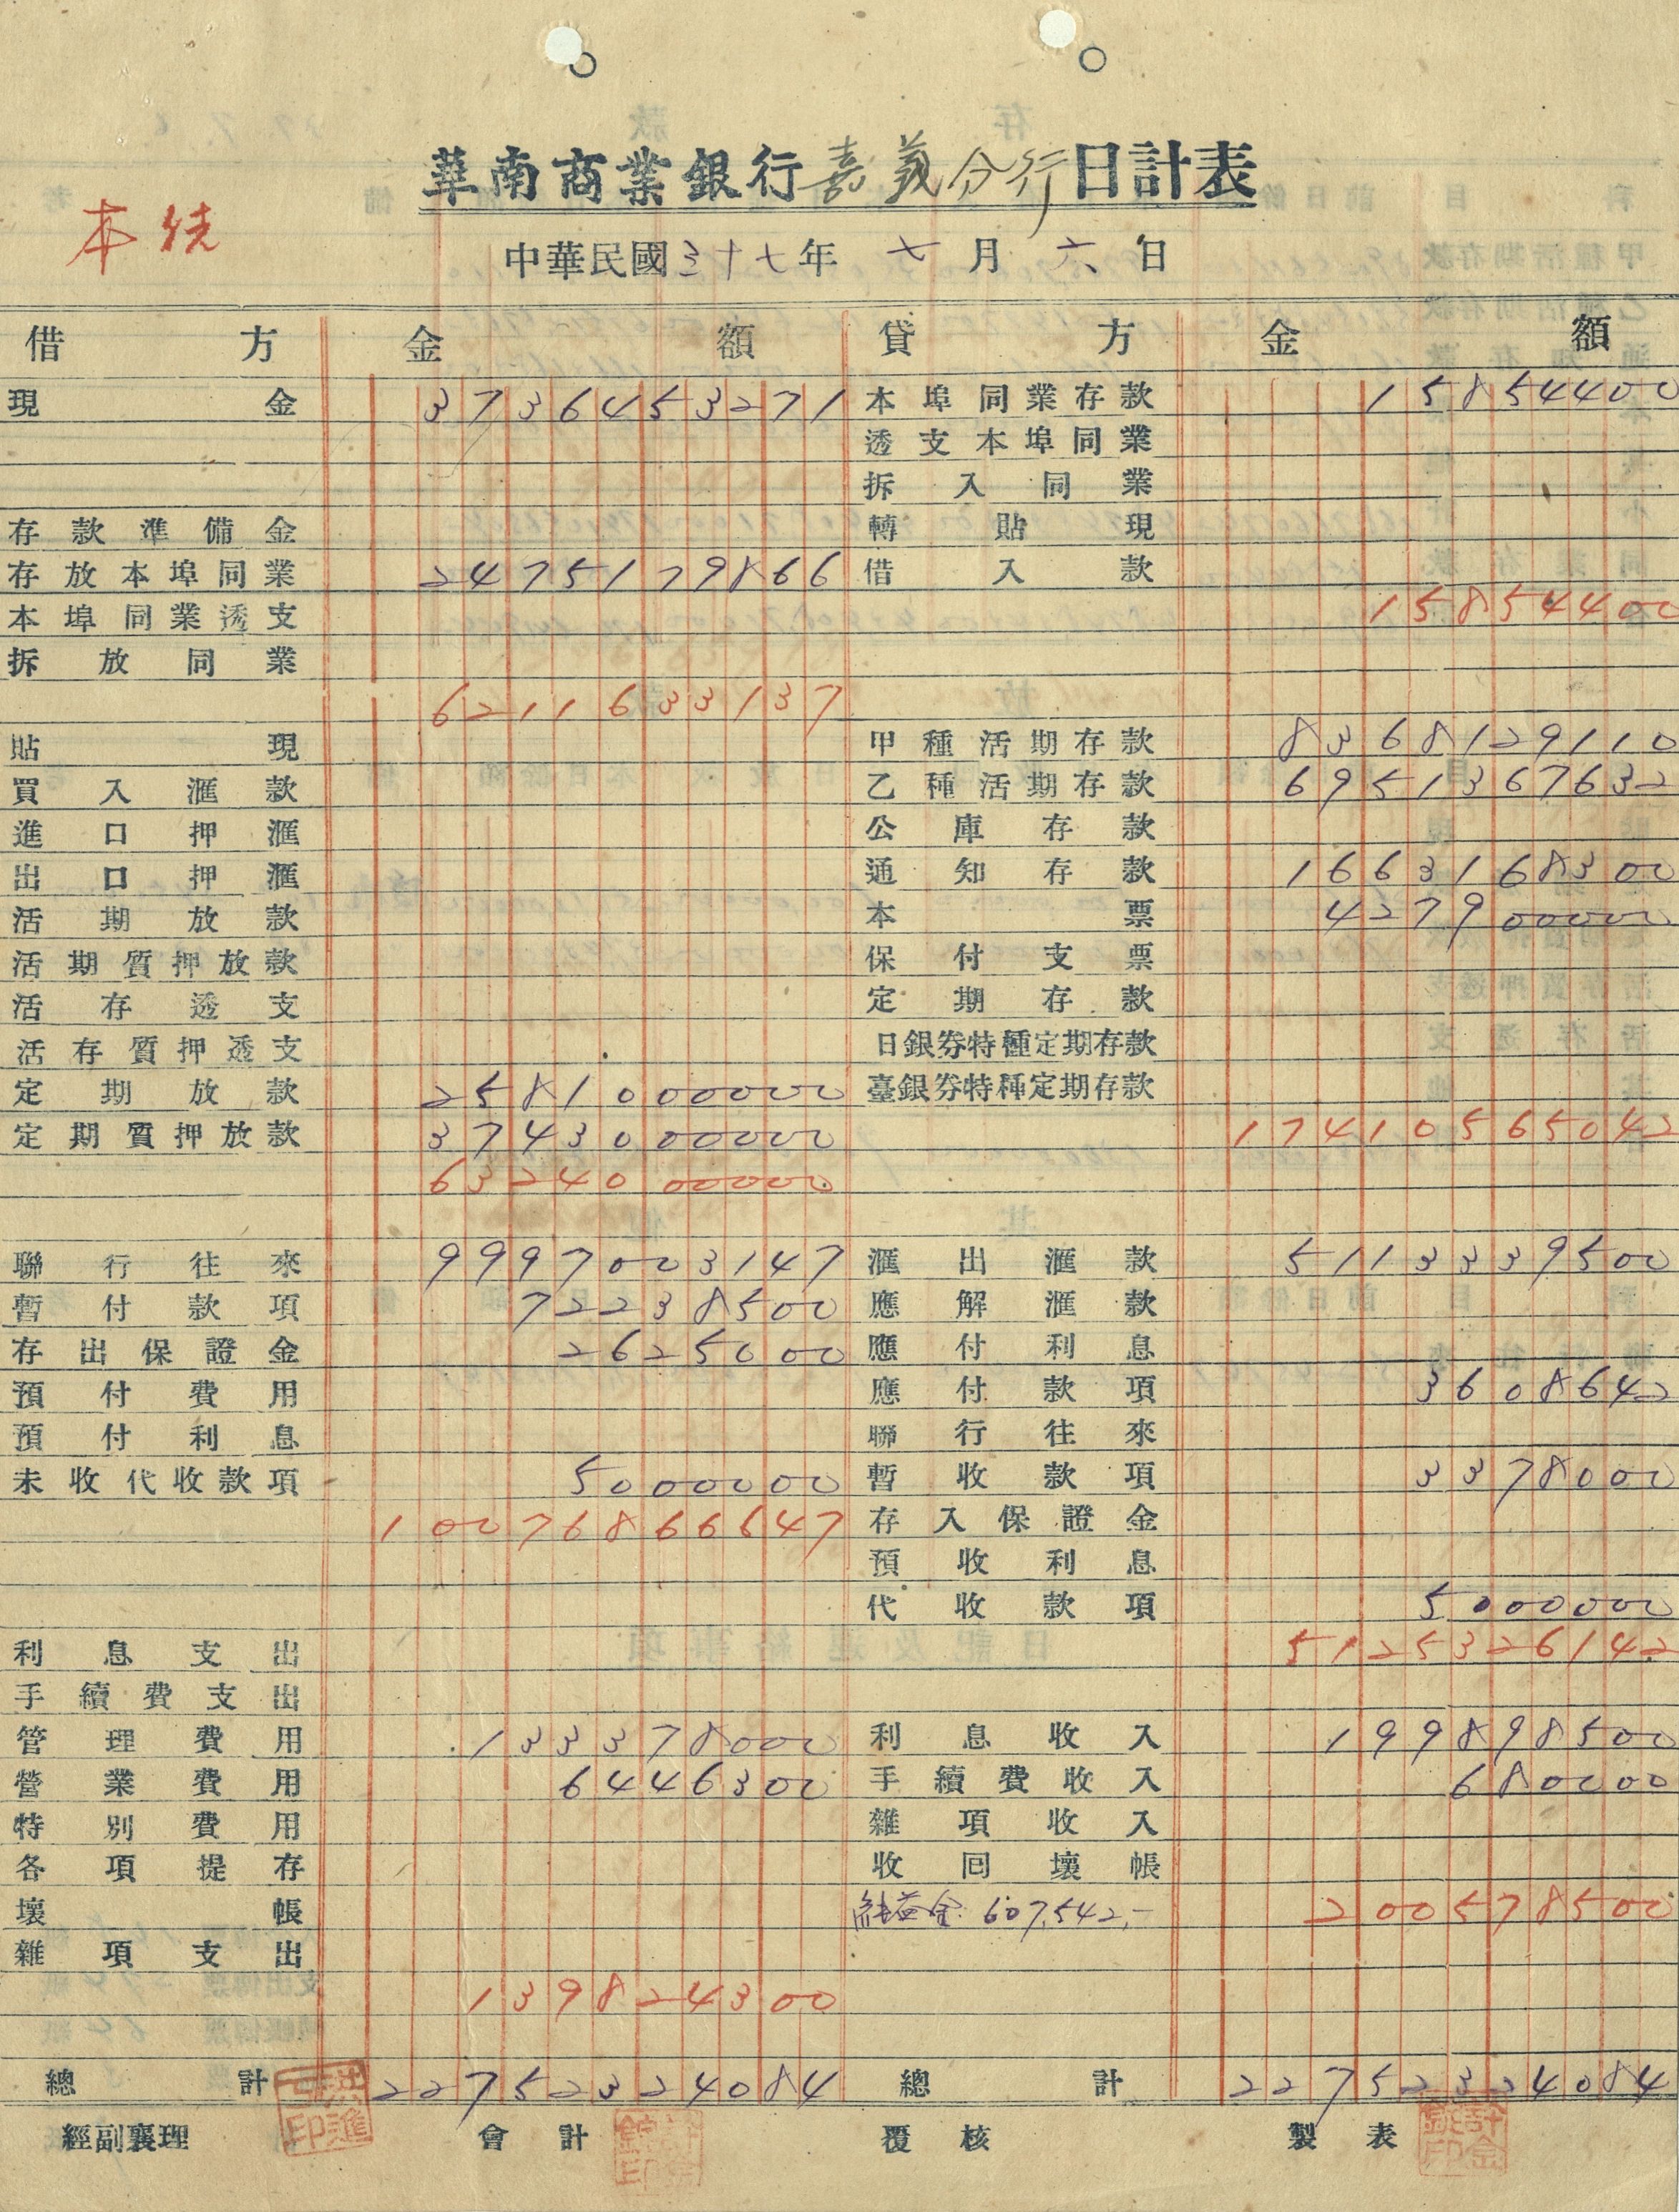 華南商業銀行嘉義分行日計表
本統
中華民國三十七年 七月 六日
借方 金額 貸方 金額
現金 3736453271 本埠同業存款 15854400
透支本埠同業
拆入同業
存款準備金 轉貼現
存放本埠同業 2475179866 借入款
本埠同業透支 15854400
拆放同業
6211633137
貼現 甲種活期存款 8368129110
買入滙款 乙種活期存款 6951367632
進口押滙 公庫存款
出口押滙 通知存款 1663168300
活期放款 本票 427900000
活期質押放款 保付支票
活存透支 定期存款
活存質押透支 日銀券特種定期存款
定期放款 2581000000 臺銀券特種定期存款
定期質押放款 3743000000 17410565042
6324000000
聯行往來 9997003147 滙出滙款 5113339500
暫付款項 72238500 應解滙款
存出保證金 2625000 應付利息
預付費用 應付款項 3608642
預付利息 聯行往來
未收代收款項 5000000 暫收款項 3378000
10076866647 存入保證金
預收利息
代收款項 5000000
利息支出 5125326142
手續費支出
管理費用 133378000 利息收入 199898500
營業費用 6446300 手續費收入 680000
特別費用 雜項收入
各項提存 收回壞帳
壞帳 純益金 607,542.- 200578500
雜項支出
139824300
總計 22752324084 總計 22752324084
經副襄理 會計 覆核 製表